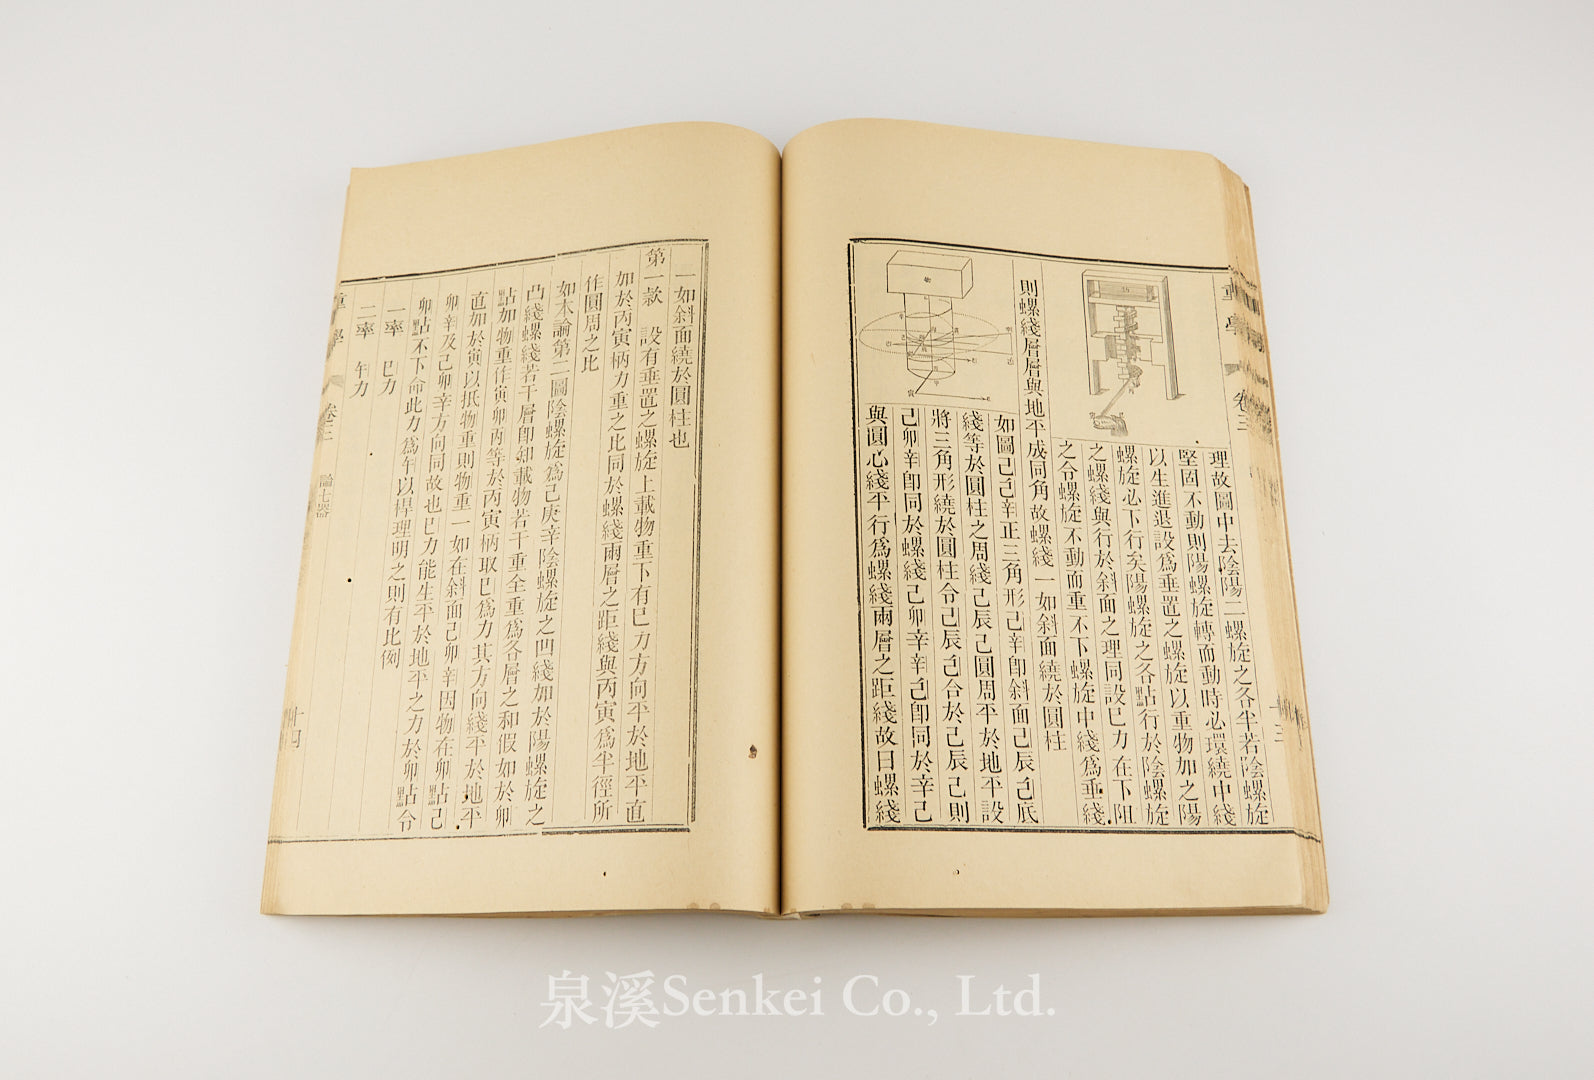 理故圖中去陰陽二螺旋之各半若陰螺旋
堅固不動則陽螺旋轉而動時必環繞中綫
以生進退設爲垂置之螺旋以重物加之陽
螺旋必下行矣陽螺旋之各點行於陰螺旋
之螺綫與行於斜面之理同設巳力在下阻
之令螺旋不動而重不下螺旋中綫爲垂綫
則螺綫層層與地平成同角故螺綫一如斜面繞於圓柱
如圖己己辛正三角形己辛卽斜面己辰己底
綫等於圓柱之周綫己辰己圓周平於地平設
將三角形繞於圓柱令己辰己合於己辰己則
己卯辛卽同於螺綫己卯辛辛己卽同於辛己
與圓心綫平行爲螺綫兩層之距綫故曰螺綫
重學
卷三
十三
一如斜面繞於圓柱也
第一款 設有垂置之螺旋上載物重下有巳力方向平於地平直
加於丙寅柄力重之比同於螺綫兩層之距綫與丙寅爲半徑所
作圓周之比
如木論第二圖陰螺旋爲己庚辛陰螺旋之凹綫加於陽螺旋之
凸綫螺綫若干層卽知載物若干重全重爲各層之和假如於卯
點加物重作寅卯丙等於丙寅柄取巳爲力其方向綫平於地平
直加於寅以抵物重則物重一如在斜面己卯辛因物在卯點己
卯辛及己卯辛方向同故也巳力能生平於地平之力於卯點令
卯點不下命此力爲午以桿理明之則有比例
一率 巳力
二率 午力
重學
卷三
論七器
十四
泉溪Senkei Co., Ltd.